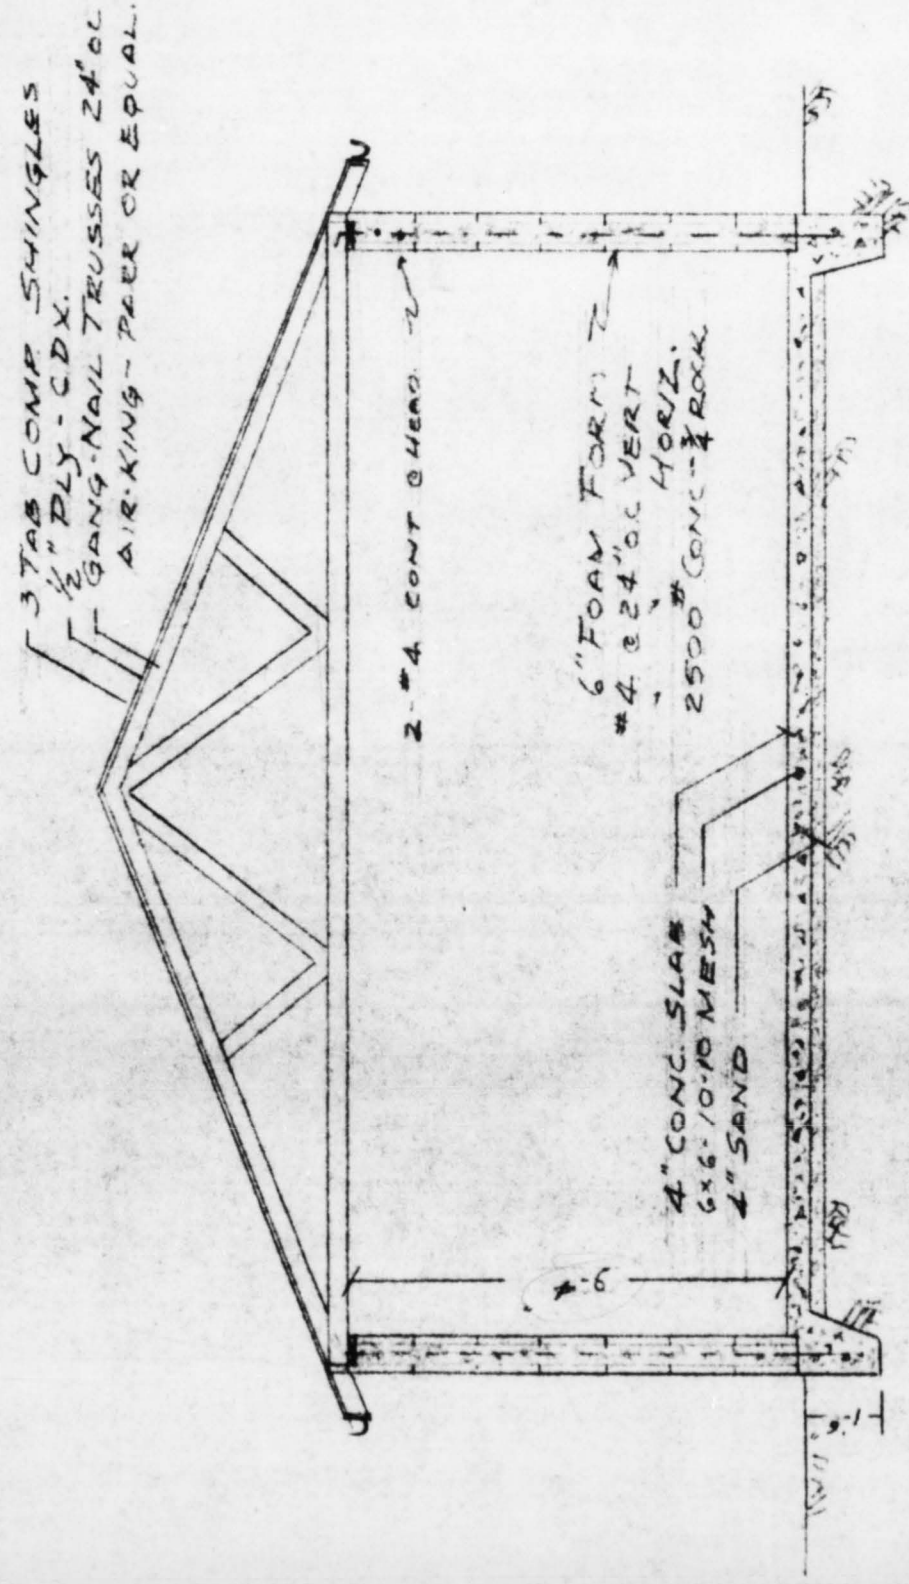 3 TAB COMP. SHINGLES
1/2" PLY - C.D.X.
GANG-NAIL TRUSSES 24" OC
AIR-KING - PARR OR EQUAL.
2-#4 CONT @ HEAD
6" FOAM FORM
#4 @ 24" O.C. VERT
" " HORIZ.
2500# CONC - 3/4 ROCK
4" CONC. SLAB
6x6-10-10 MESH
4" SAND
1'-6